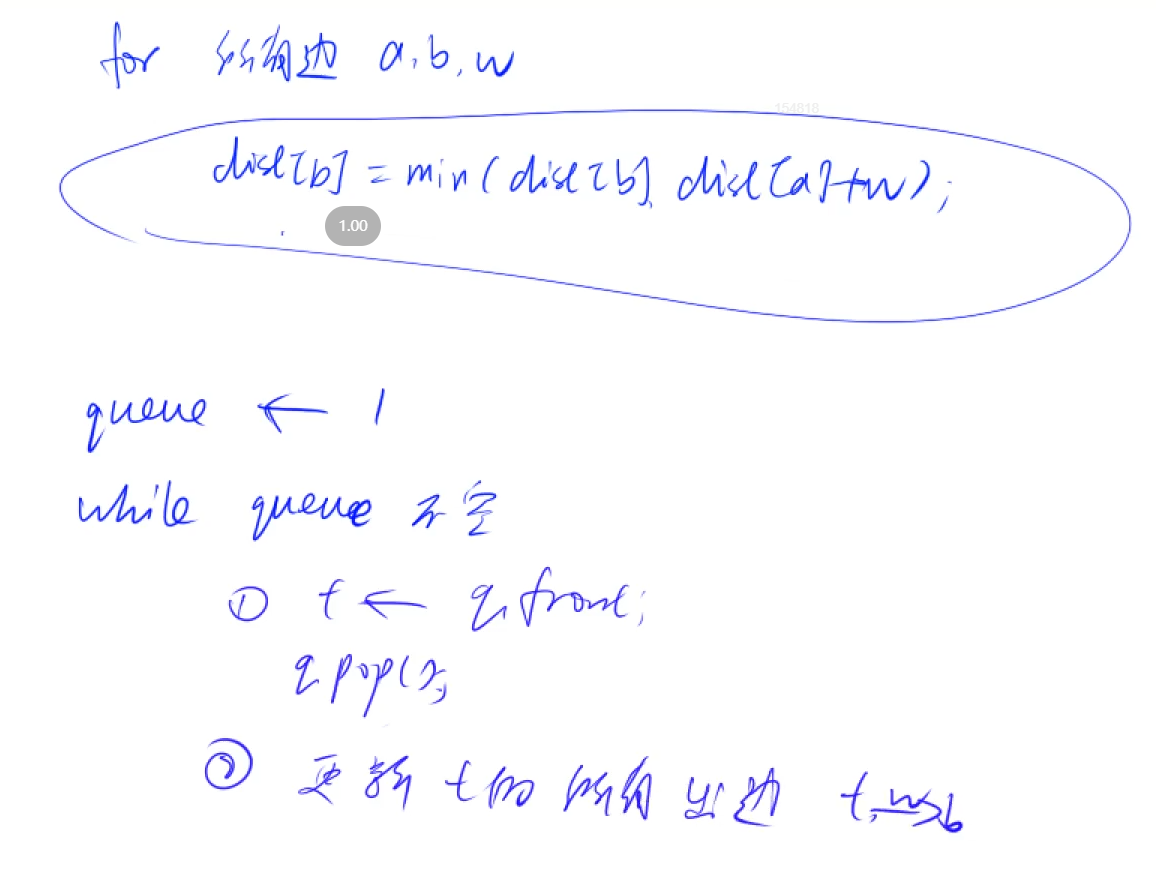 for 所有边 a,b,w
154818
dist[b] = min(dist[b], dist[a]+w);
1.00
queue ← 1
while queue 不空
① t ← q.front;
q.pop();
② 更新 t的 所有 出边 t, w→b